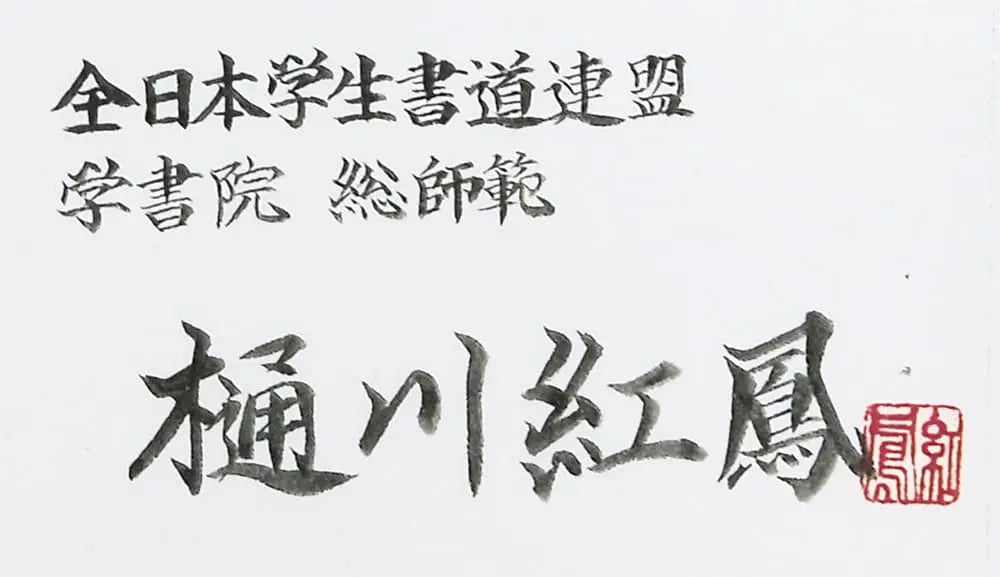 全日本学生書道連盟
学書院 総師範
樋川紅鳳
紅鳳